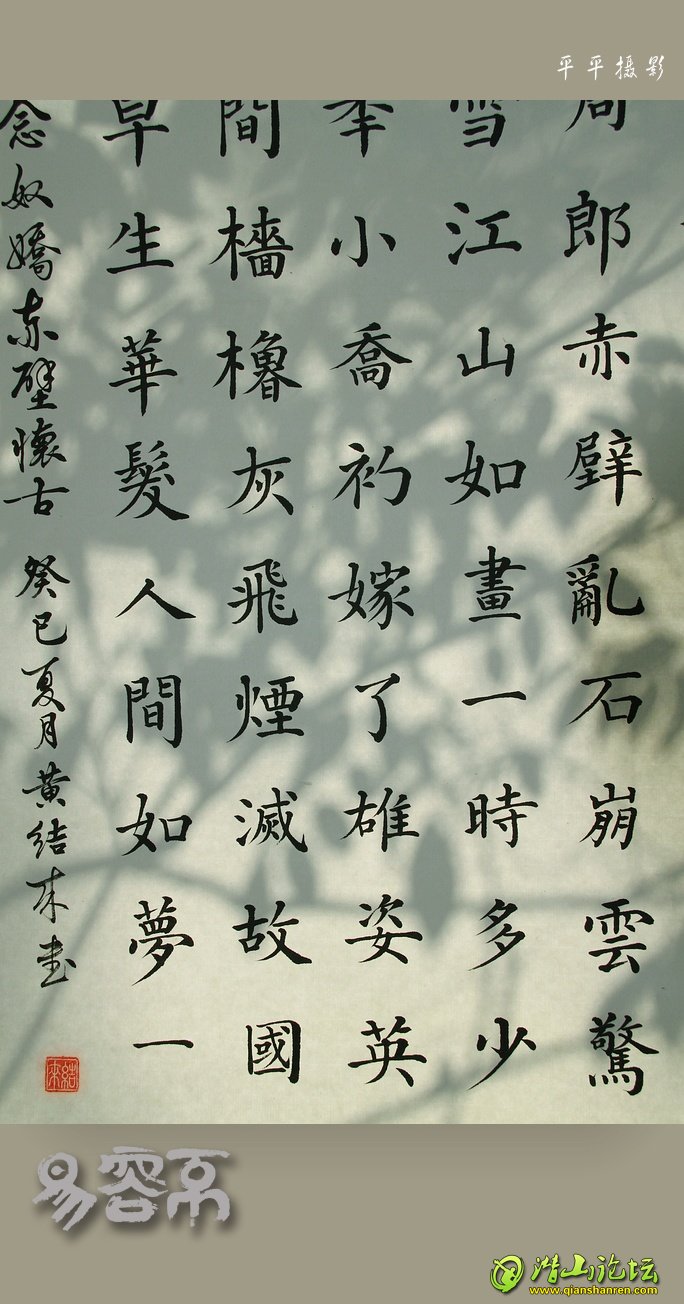 平平摄影
周郎赤壁亂石崩雲驚
雪江山如畫一時多少
年小喬初嫁了雄姿英
間檣櫓灰飛煙滅故國
早生華髮人間如夢一
念奴嬌赤壁懷古 癸巳夏月黄结來书
結來
易容斋
潜山论坛
www.qianshanren.com